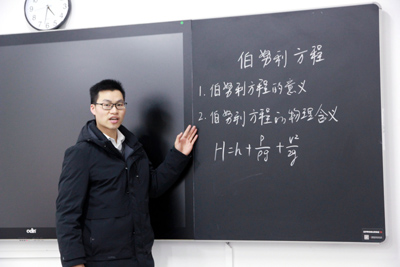 伯努利方程
1. 伯努利方程的意义
2. 伯努利方程的物理含义
H=h+p/ρg+v²/2g